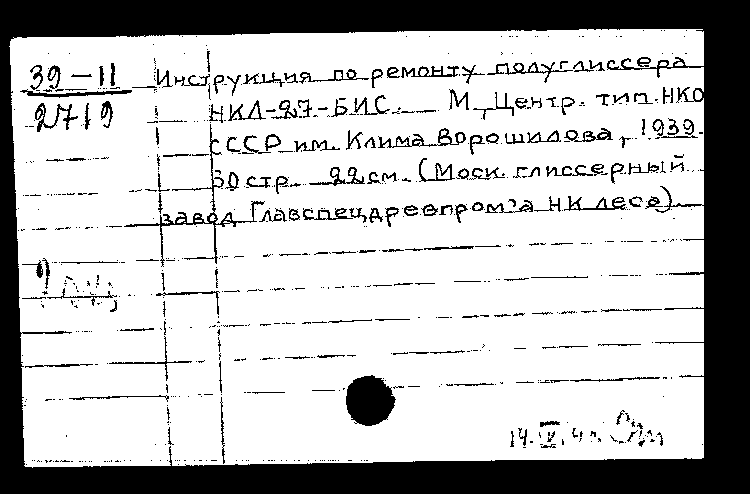 39-11
2719
Инструкция по ремонту полуглиссера
НКЛ-27-БИС. М., Центр. тип. НКО
СССР им. Клима Ворошилова, 1939.
30 стр. 22 см. (Моск. глиссерный
завод Главспецдревпром'а НК леса).
14. IV. 4